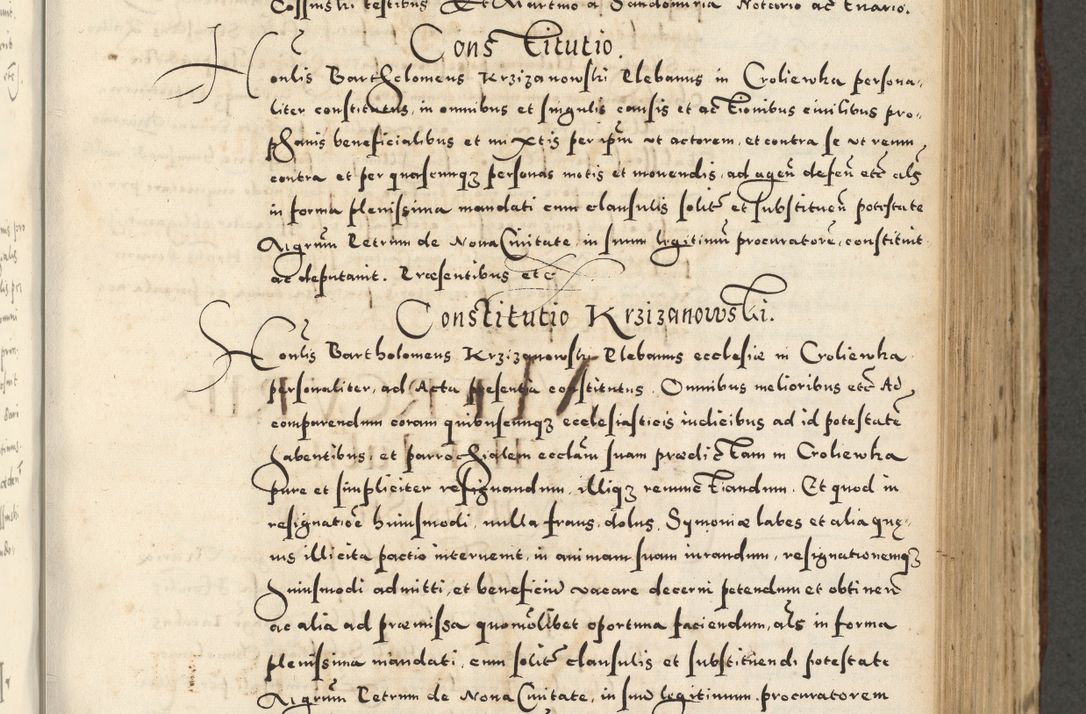 Cossinski testibus Et Martino a Sandomiria Notario ac Cnario.
Constitutio.
Honlis Bartholomeus Krzizanowski Plebanus in Croliewka persona-
liter constitutus, in omnibus et singulis causis et actionibus ciuilibus pro-
phanis beneficialibus et mixtis per ipm vt actorem, et contra se vt reum
contra et per quascunqz personas motis et mouendis, ad agen defen etc als
in forma plenissima mandati cum clausulis solit et substituen potestate
Aigrum Petrum de Noua Ciuitate, in suum legitimu procuratore, constituit
ac deputauit. Præsentibus etc
Constitutio Krzizanowski.
Honlis Bartholomeus Krzizanowski Plebanus ecclesiæ in Croliewka
personaliter, ad Acta presentia constitutus. Omnibus melioribus etc Ad
comparendum coram quibuscunqz ecclesiasticis iudicibus ad id potestate
habentibus, et parrochialem ecclam suam prædictam in Croliewka
pure et simpliciter resignandum, illiqz renunctiandum. Et quod in
resignatioe huiusmodi, nulla fraus, dolus, Symoniæ labes et alia quę-
uis illicita pactio interuenit, in animam suam iurandum, resignationemqz
huiusmodi admitti, et beneficiu vacare decerni petendum et obtinen
ac alia ad præmissa quomolibet oportuna faciendum, als in forma
plenissima mandati, cum solit clausulis et substituendi potestate
Aigrum Petrum de Noua Ciuitate, in suu legitimum procuratorem